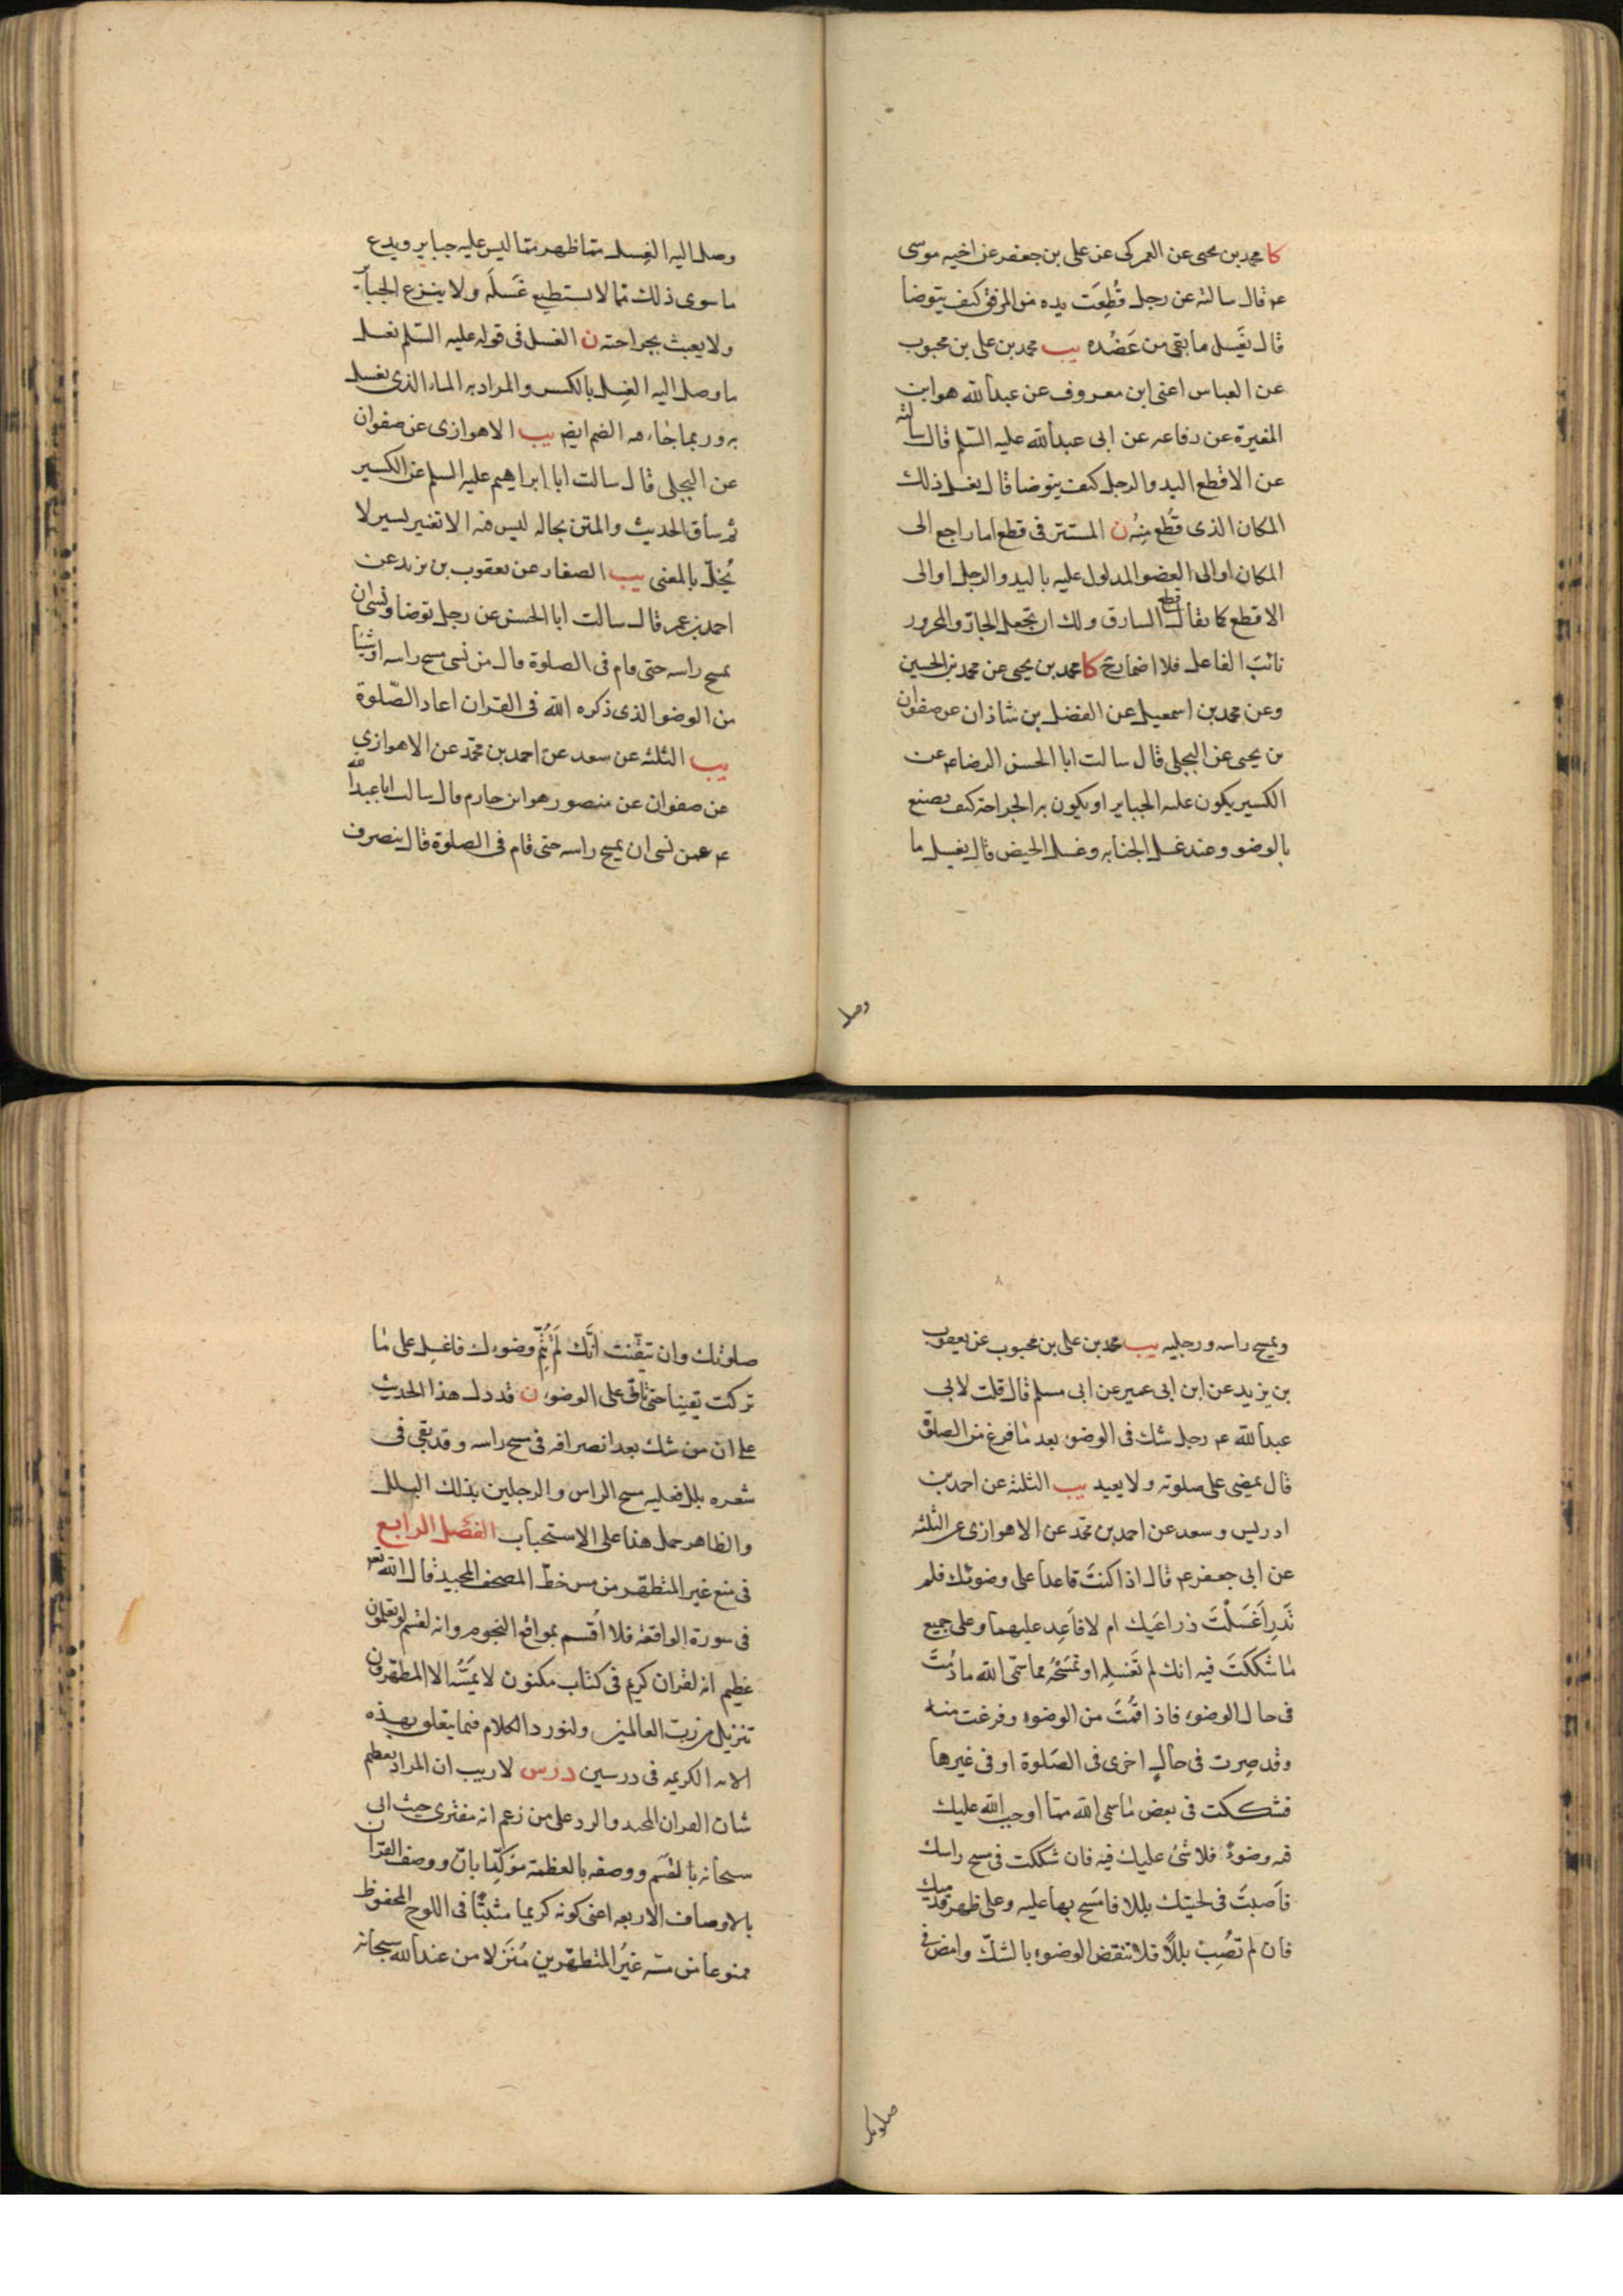 كا محمد بن يحيى عن العمركى عن على بن جعفر عن اخيه موسى
ع قال سالته عن رجل قُطِعَت يده من المرفق كيف يتوضا
قال يغَسل ما بقى من عَضُده يب محمد بن على بن محبوب
عن العباس اعنى ابن معروف عن عبدالله هو ابن
المغيرة عن رفاعه عن ابى عبدالله عليه السّلم قال سالته
عن الاقطع اليد والرجل كيف يتوضا قال يغسل ذلك
المكان الذى قُطع مِنْهُ ن المستتر فى قطع اما راجع الى
المكان او الى العضو المدلول عليه باليد والرجل او الى
الاقطع كما يقال قطع السارق ولك ان تجعل الجارّ والمجرور
نائبَ الفاعل فلا اضمار ح كا محمد بن يحيى عن محمد بن الحسين
وعن محمد بن اسمعيل عن الفضل بن شاذان عن صفوان
بن يحيى عن البجلى قال سالت ابا الحسن الرضا ع عن
الكسير يكون عليه الجباير او يكون به الجراحة كيف يصنع
بالوضوء وعند غسل الجنابه وغسل الحيض قال يغسل ما
وصل
وصل اليه الغِسل مما ظهر مما ليس عليه جباير ويدع
ما سوى ذلك مما لا يستطيع غَسلَه ولا ينزع الجباير
ولا يعبث بجراحته ن الغسل فى قوله عليه السّلم يغسل
ما وصل اليه الغِسل بالكسر والمراد به الماء الذى يغسل
به وربما جاء فيه الضم ايضا يب الاهوازى عن صفوان
عن البجلى قال سالت ابا ابراهيم عليه السلم عن الكسير
ثم ساق الحديث والمتن بحاله ليس فيه الا تغير يسير لا
يُخلّ بالمعنى يب الصفار عن يعقوب بن يزيد عن
احمد بن عمر قال سالت ابا الحسن عن رجل توضا ونسى ان
يمسح راسه حتى قام فى الصلوة قال من نسى مسح راسه او شيئا
من الوضو الذى ذكره الله فى القران اعاد الصّلوة
يب الثلثه عن سعد عن احمد بن محمّد عن الاهوازى
عن صفوان عن منصور هو ابن حازم قال سالت ابا عبدالله
ع عمن نسى ان يمسح راسه حتى قام فى الصلوة قال ينصرف
ويمسح راسه ورجليه يب محمد بن على بن محبوب عن يعقوب
بن يزيد عن ابن ابى عمير عن ابى مسلم قال قلت لابى
عبدالله ع رجل شك فى الوضوء بعد ما فرغ من الصلوة
قال يمضى على صلوته ولا يعيد يب الثلثه عن احمد بن
ادريس وسعد عن احمد بن محمّد عن الاهوازى عن الثلثه
عن ابى جعفر ع قال اذا كنتَ قاعدا على وضوئك فلم
تَدرِ اَغَسَلْتَ ذراعَيك ام لا فاَعِد عليهما وعلى جميع
ما شككتَ فيه انك لم تَغسله او تمسَحْهُ مما سمّى الله ما دُمتَ
فى حال الوضوء فاذا قُمتَ من الوضوء وفرغت منه
وقد صِرت فى حالٍ اخرى فى الصَلوة او فى غيرها
فشككت فى بعض ما سمى الله ممّا اوجب الله عليك
فيه وضوءً فلا شئ عليك فيه فان شككت فى مسح راسك
فاَصبتَ فى لحيتك بللا فامسَح بها عليه وعلى ظهر قدميك
فان لم تُصِب بللًا فلا تنقض الوضوء بالشكّ وامض فى
صلوتك
صلوتك وان تيقّنت اَنَّك لَم تُتِمّ وضوءك فاغسل على ما
تركت يقينا حتى تاتى على الوضوء ن قد دل هذا الحديث
على ان من شك بعد انصرافه فى مسح راسه وقد بقى فى
شعره بلل فعليه مسح الراس والرجلين بذلك البلل
والظاهر حمل هذا على الاستحباب الفصل الرابع
فى منع غير المتطهّر من مس خطّ المصحف المجيد قال الله تعو
فى سورة الواقعه فلا اُقسم بمواقع النجوم وانه لقسم لو تعلمون
عظيم انه لقران كريم فى كتاب مكنون لا يمَسّه الا المطهّرون
تنزيل من ربّ العالمين ولنورد الكلام فيما يتعلق بهذه
الايه الكريمه فى درسين درس لا ريب ان المراد تعظيم
شان القران المجيد والرد على من زعم انه مفترى حيث اتى
سبحانه بالقَسَم ووصفه بالعظمة مؤكِّدا بانّ ووصف القرآن
بالاوصاف الاربعه اعنى كونه كريما مثبتًا فى اللوح المحفوظ
ممنوعا من مسّه غيرُ المتطهّرين مُنَزلا من عند الله سبحانه